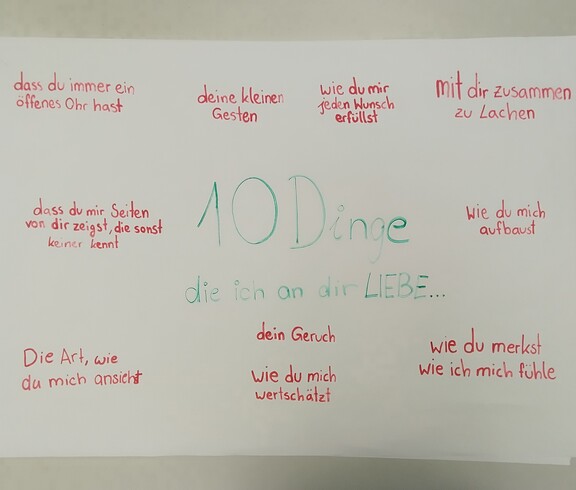 dass du immer ein
öffenes Ohr hast
deine kleinen
Gesten
wie du mir
jeden Wunsch
erfüllst
mit dir zusammen
zu Lachen
dass du mir Seiten
von dir zeigst, die sonst
keiner kennt
10 Dinge
die ich an dir LIEBE...
wie du mich
aufbaust
Die Art, wie
du mich ansieht
dein Geruch
wie du mich
wertschätzt
wie du merkst
wie ich mich fühle